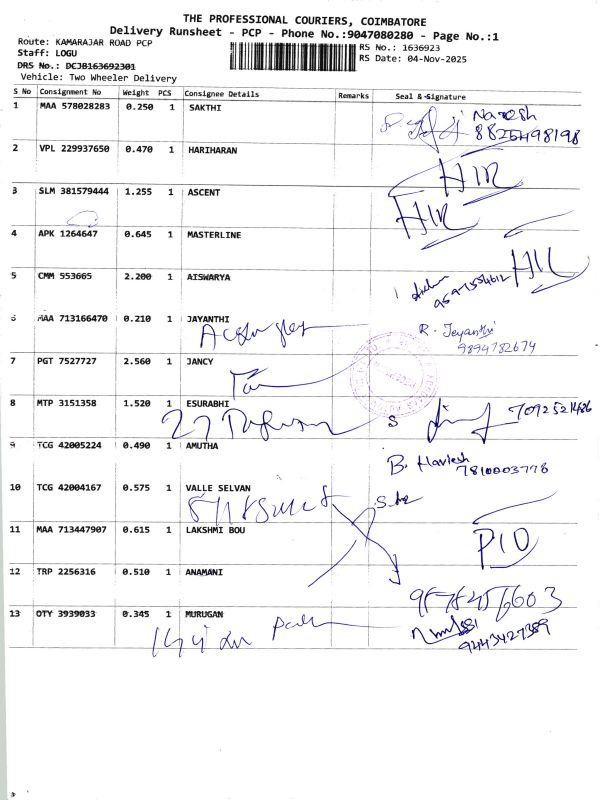 THE PROFESSIONAL COURIERS, COIMBATORE
Delivery Runsheet - PCP - Phone No.:9047080280 - Page No.:1
Route: KAMARAJAR ROAD PCP
Staff: LOGU
DRS No.: DCJB163692301
Vehicle: Two Wheeler Delivery
RS No.: 1636923
RS Date: 04-Nov-2025
S No Consignment No Weight PCS Consignee Details Remarks Seal & Signature
1 MAA 578028283 0.250 1 SAKTHI
Naresh
8825498198
2 VPL 229937650 0.470 1 HARIHARAN
3 SLM 381579444 1.255 1 ASCENT
4 APK 1264647 0.645 1 MASTERLINE
5 CMM 553665 2.200 1 AISWARYA
6 MAA 713166470 0.210 1 JAYANTHI
R. Jeyanthi
9894782674
7 PGT 7527727 2.560 1 JANCY
8 MTP 3151358 1.520 1 ESURABHI
S
7092521486
9 TCG 42005224 0.490 1 AMUTHA
B. Harish
7810003778
10 TCG 42004167 0.575 1 VALLE SELVAN
11 MAA 713447907 0.615 1 LAKSHMI BOU
12 TRP 2256316 0.510 1 ANAMANI
9878456603
13 OTY 3939033 0.345 1 MURUGAN
9443427389